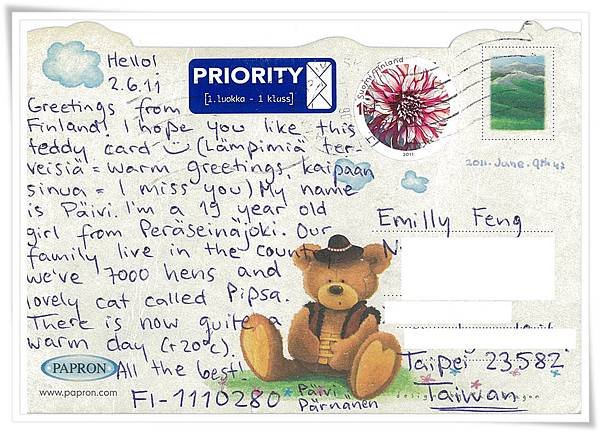 Hello!
2.6.11
Greetings from
Finland! I hope you like this
teddy card ☺ (Lämpimiä ter-
veisiä = warm greetings, kaipaan
sinua = I miss you) My name
is Päivi. I'm a 19 year old
girl from Peräseinäjoki. Our
family live in the count
we've 7000 hens and
lovely cat called Pipsa.
There is now quite a
warm day (+20°C).
All the best!
FI-1110280
Päivi
Pärnänen
PRIORITY
[1.luokka - 1 klass]
Suomi Finland
2011
2011. June. 9th
Emilly Feng
N
Taipei 23582
Taiwan
PAPRON
www.papron.com